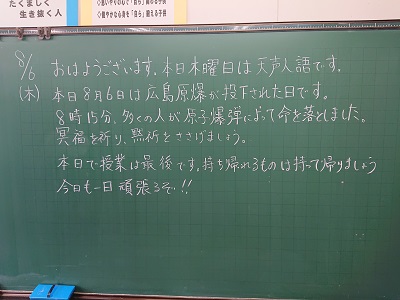 たくましく
生き抜く人
8/6 おはようございます。本日木曜日は天声人語です。
(木) 本日8月6日は広島原爆が投下された日です。
8時15分、多くの人が原子爆弾によって命を落としました。
冥福を祈り、黙祈をささげましょう。
本日で授業は最後です。持ち帰れるものは持って帰りましょう
今日も一日頑張るぞ!!